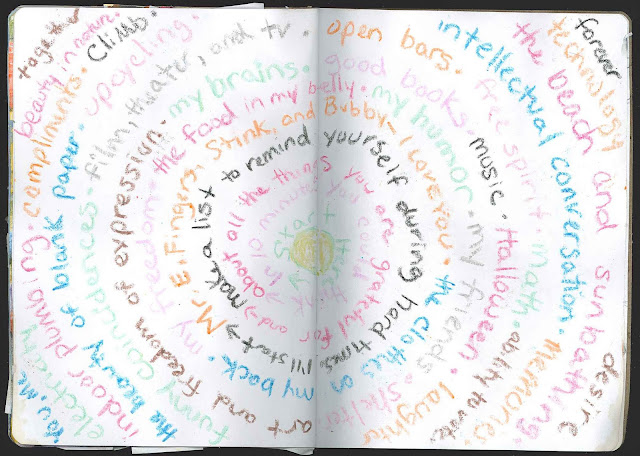 Start Here
in 10 minutes you could think
about all the things you are grateful for and →
make a list to remind yourself during hard times. I'll start →
Mr. E. Fingers, Stink, and Bubby - I love you. the clothes on my back.
my the food in my belly. my humor. my friends. shelter.
art and freedom of expression. my brains. good books. music. Halloween. ability to write. laughter.
funny coincidences. film, theater, and tv. free spirit. math. memories.
the beauty of blank paper. upcycling. open bars. intellectual conversation.
electricity. compliments. Climb. technology
the beach and sunbathing.
indoor plumbing. beauty in nature.
forever
desire
you, me
together